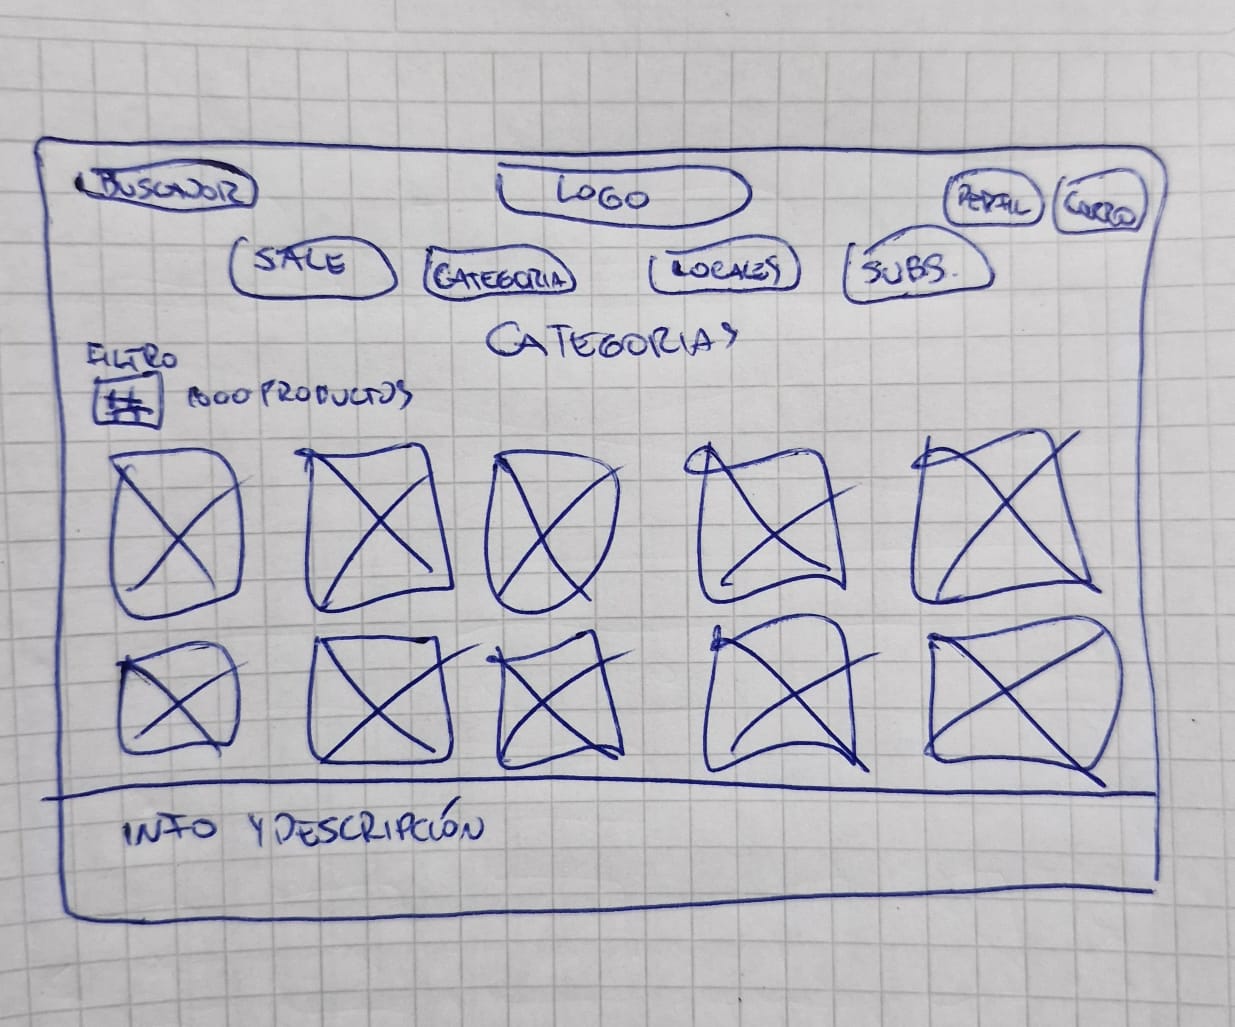 BUSCADOR LOGO PERFIL CARRO
SALE CATEGORIA LOCALES SUBS.
CATEGORIAS
FILTRO
1000 PRODUCTOS
INFO Y DESCRIPCIÓN